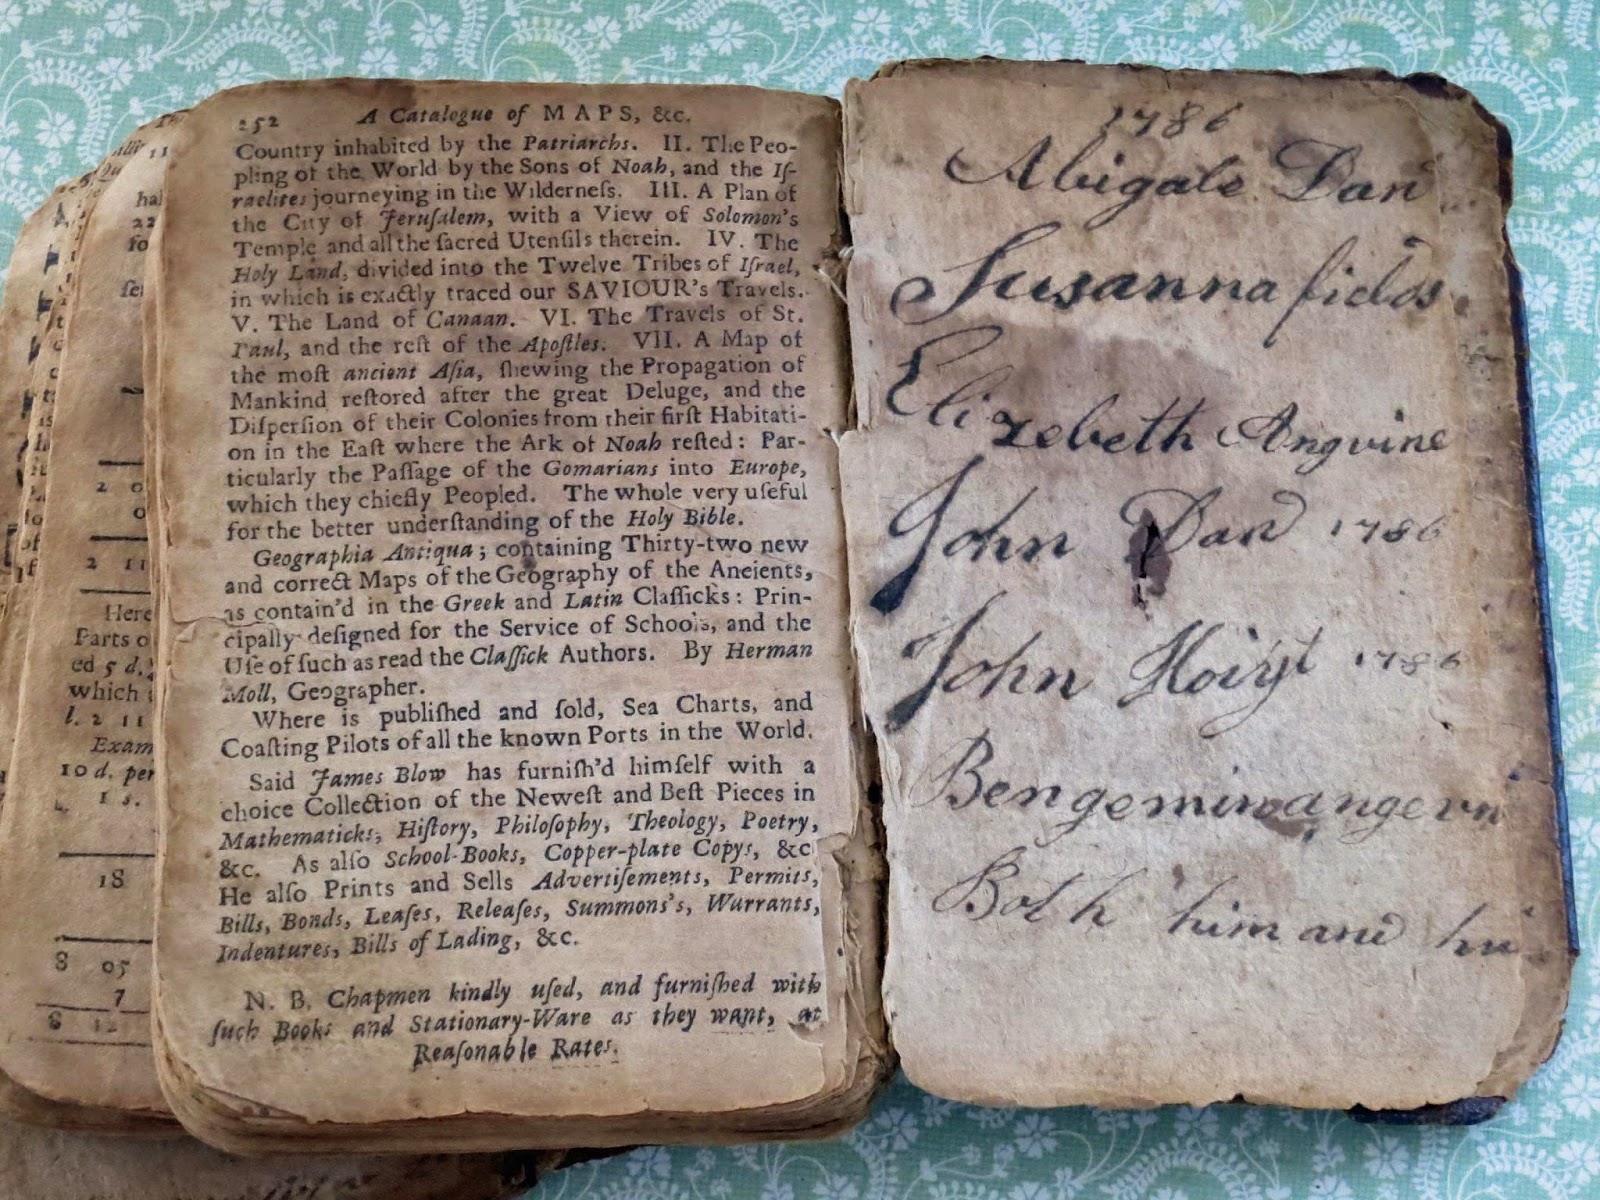 252 A Catalogue of MAPS, &c.
Country inhabited by the Patriarchs. II. The Peo-
pling of the World by the Sons of Noah, and the Iſ-
raelites journeying in the Wilderneſs. III. A Plan of
the City of Jeruſalem, with a View of Solomon's
Temple and all the ſacred Utenſils therein. IV. The
Holy Land, divided into the Twelve Tribes of Iſrael,
in which is exactly traced our SAVIOUR's Travels.
V. The Land of Canaan. VI. The Travels of St.
Paul, and the reſt of the Apoſtles. VII. A Map of
the moſt ancient Aſia, ſhewing the Propagation of
Mankind reſtored after the great Deluge, and the
Diſperſion of their Colonies from their firſt Habitati-
on in the Eaſt where the Ark of Noah reſted: Par-
ticularly the Paſſage of the Gomarians into Europe,
which they chiefly Peopled. The whole very uſeful
for the better underſtanding of the Holy Bible.
Geographia Antiqua; containing Thirty-two new
and correct Maps of the Geography of the Aneients,
as contain'd in the Greek and Latin Claſſicks: Prin-
cipally deſigned for the Service of Schools, and the
Uſe of ſuch as read the Claſſick Authors. By Herman
Moll, Geographer.
Where is publiſhed and ſold, Sea Charts, and
Coaſting Pilots of all the known Ports in the World.
Said James Blow has furniſh'd himſelf with a
choice Collection of the Neweſt and Beſt Pieces in
Mathematicks, Hiſtory, Philoſophy, Theology, Poetry,
&c. As alſo School-Books, Copper-plate Copys, &c
He alſo Prints and Sells Advertiſements, Permits,
Bills, Bonds, Leaſes, Releaſes, Summons's, Warrants,
Indentures, Bills of Lading, &c.
N. B. Chapmen kindly uſed, and furniſhed with
ſuch Books and Stationary-Ware as they want, at
Reaſonable Rates.
1786
Abigale Dan
Susanna fields
Elizebeth Angvine
John Dan 1786
John Hoiyt 1786
Bengemin angevn
Both him and hi
Here
Parts o
ed 5 d.
which
l. 2 11
Exam
10 d. per
1 s.
18
8 05
7
8 12